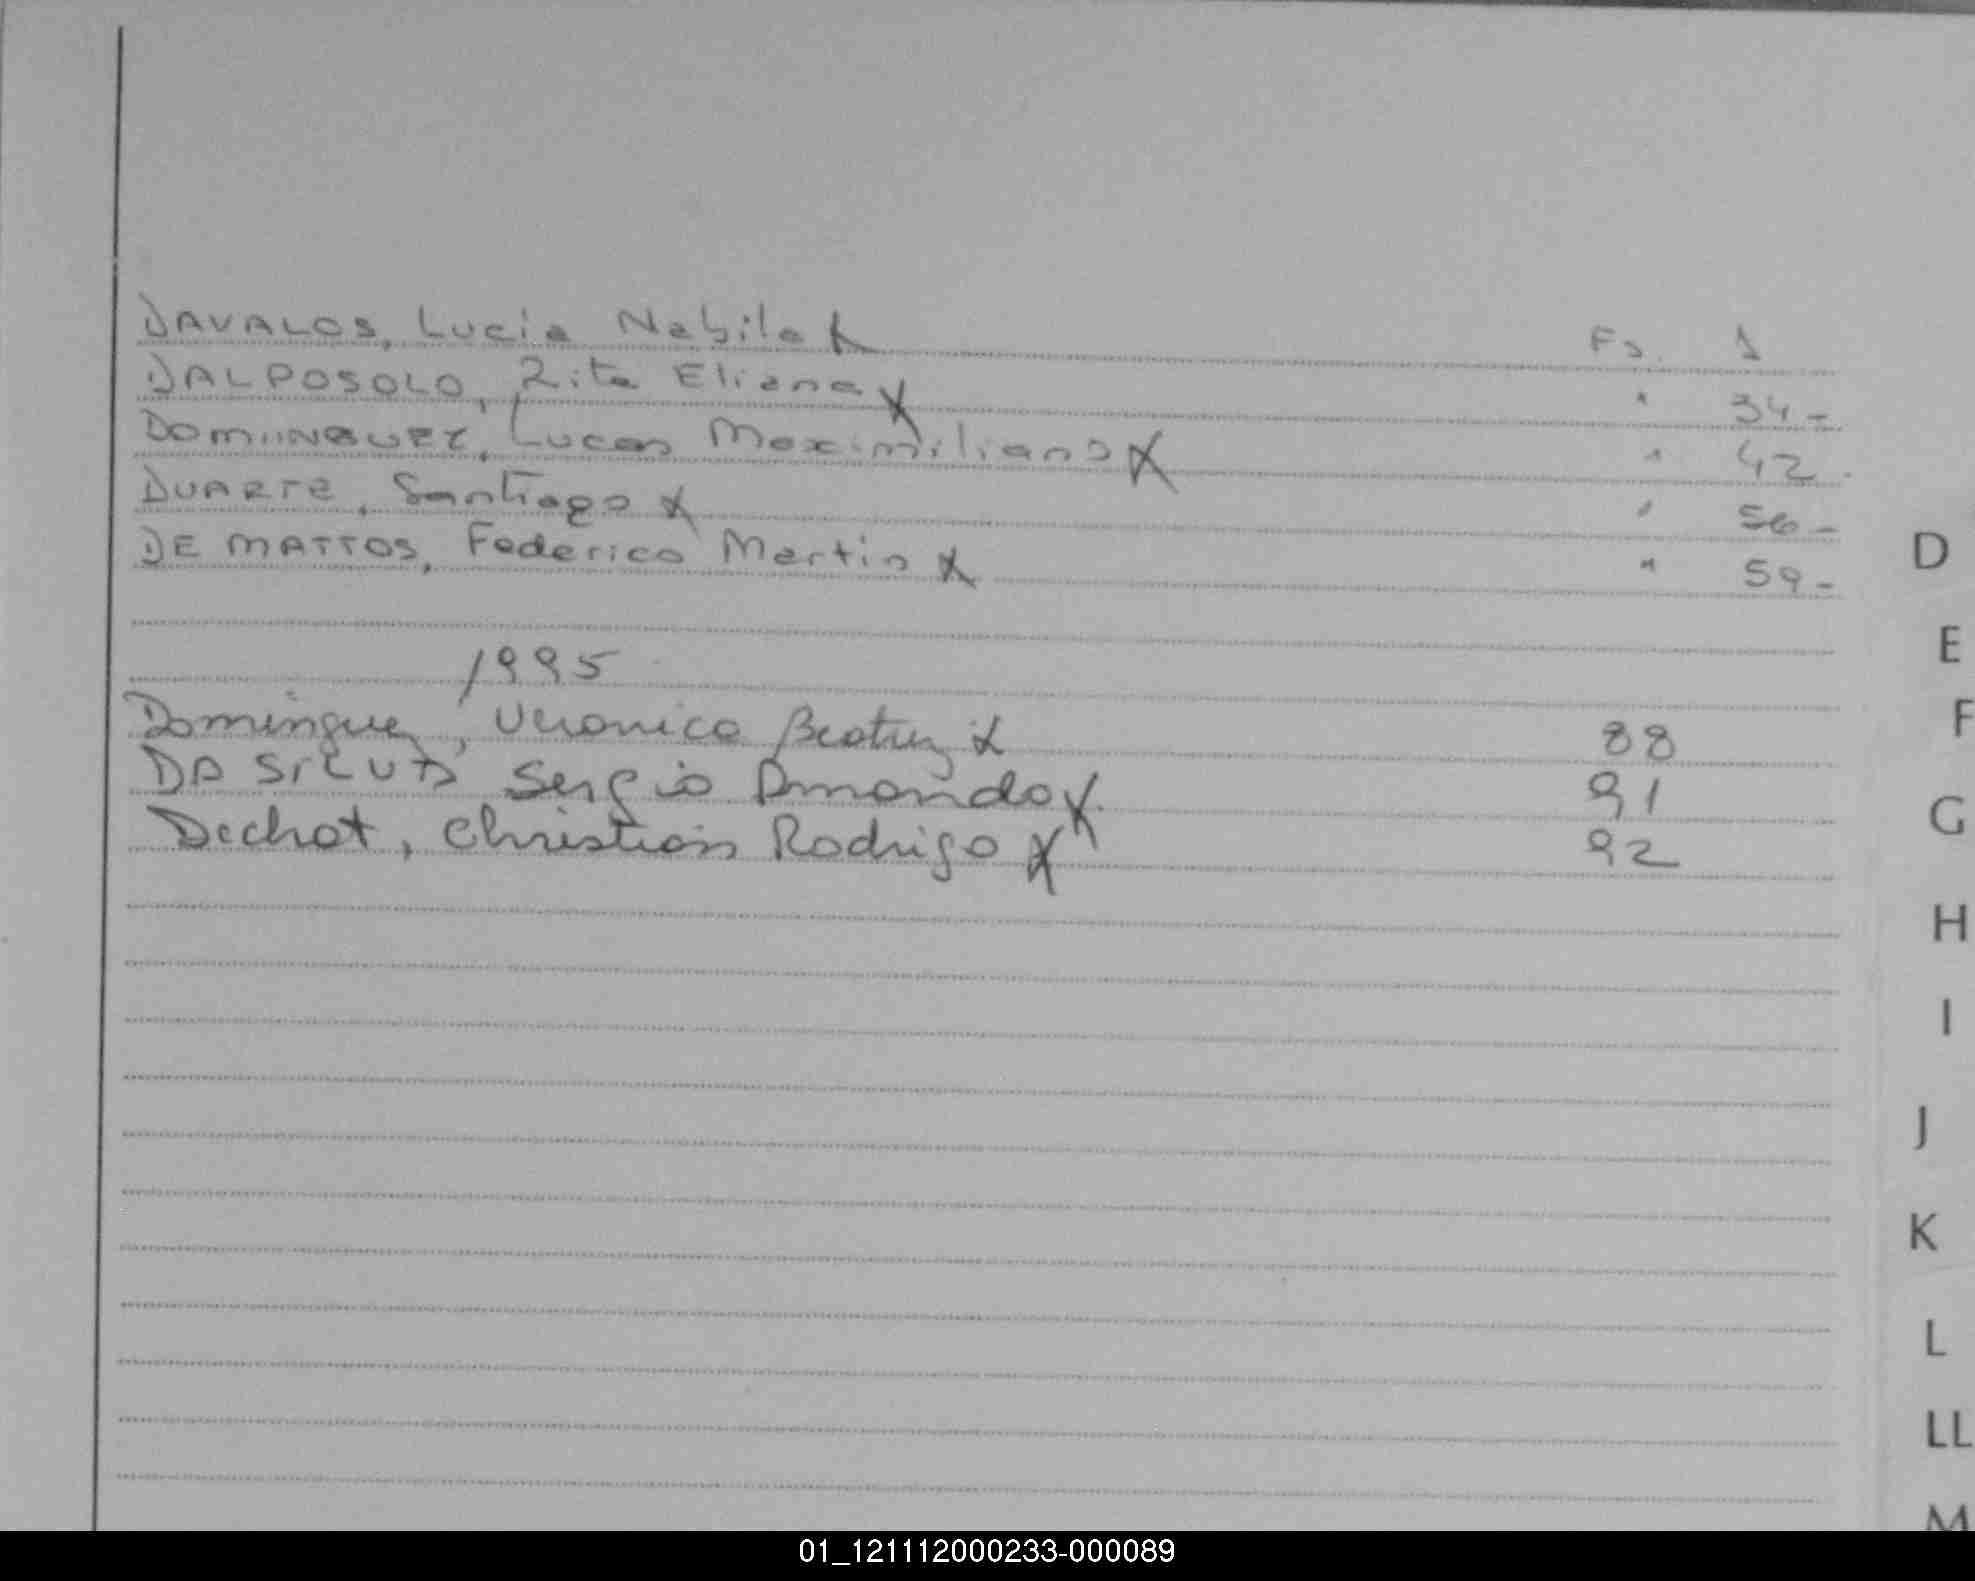 DAVALOS, Lucia Nabila X Fs. 1
DALPOSOLO, Rita Eliana X " 34-
DOMIINGUEZ, Lucas Maximiliano X " 42
DUARTE, Santiago X " 56-
DE MATTOS, Federico Martin X " 59-
1995
Dominguez, Veronica Beatriz X 88
DA SILVA Sergio Armando X 91
Dechat, Christian Rodrigo X 92
D
E
F
G
H
I
J
K
L
LL
M
01_121112000233-000089